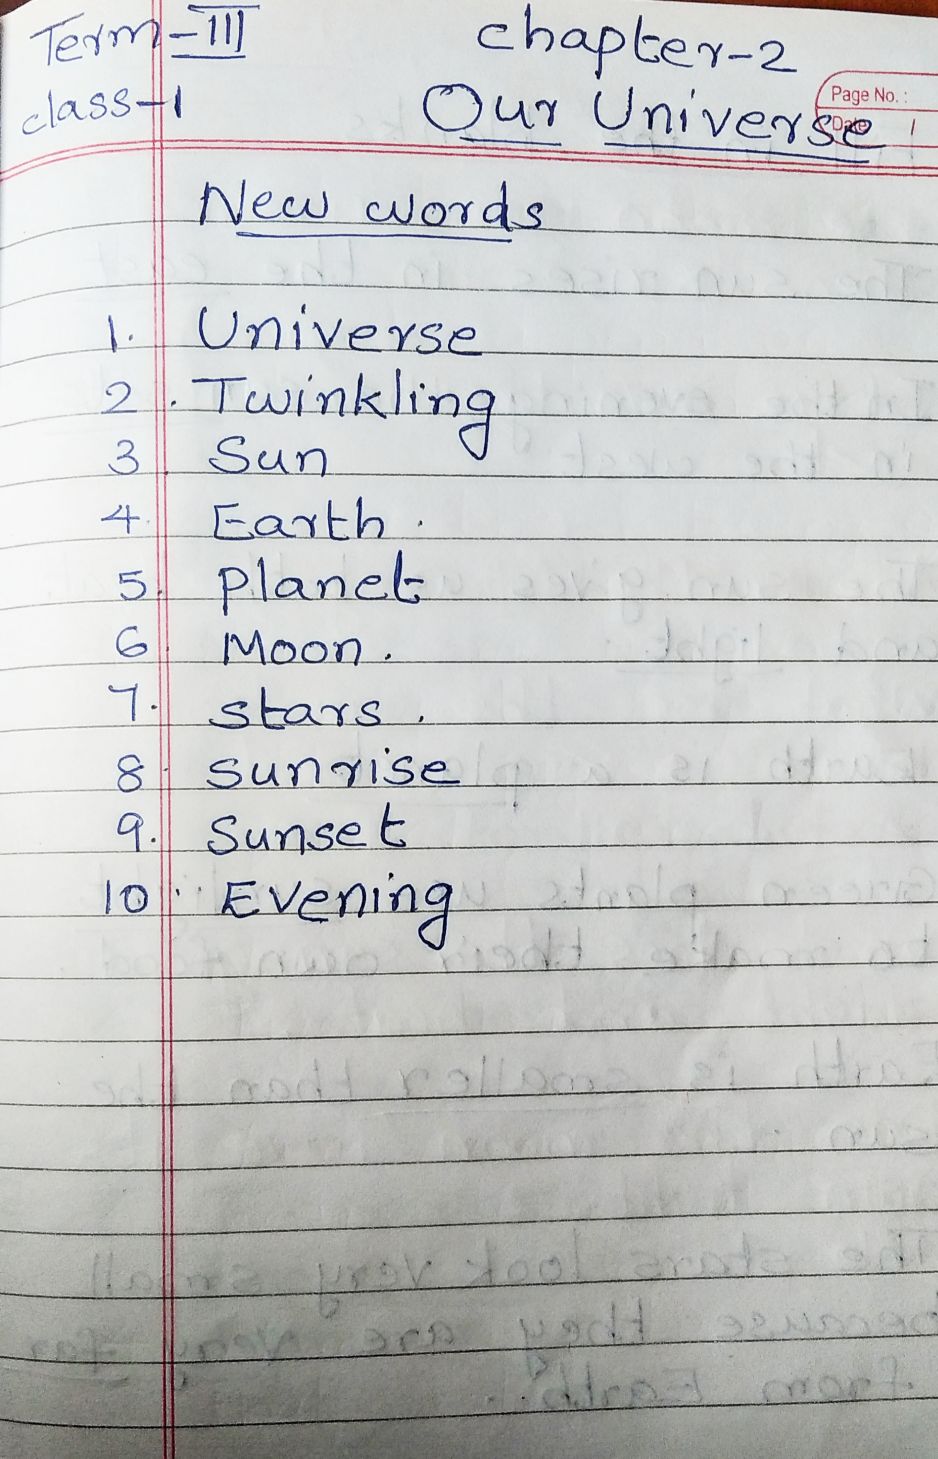 Term-III
chapter-2
class-1
Our Universe
Page No. :
Date
New words
1. Universe
2. Twinkling
3. Sun
4. Earth.
5. planet
6 Moon.
7. stars.
8. sunrise
9. Sunset
10. Evening